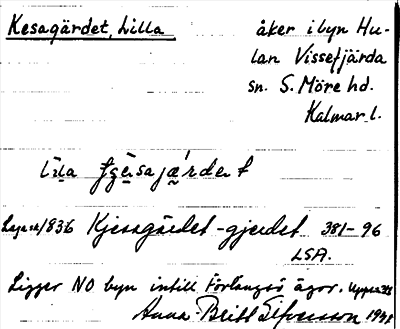 Kesagärdet, Lilla
åker i byn Hu-
lan Vissefjärda
sn. S. Möre hd.
Kalmar l.
Laga sk. 1836 Kjesagärdet-gjerdet 381-96
LSA.
Ligger NO byn intill Förlångsö ägor.
Anna-Britt 1941